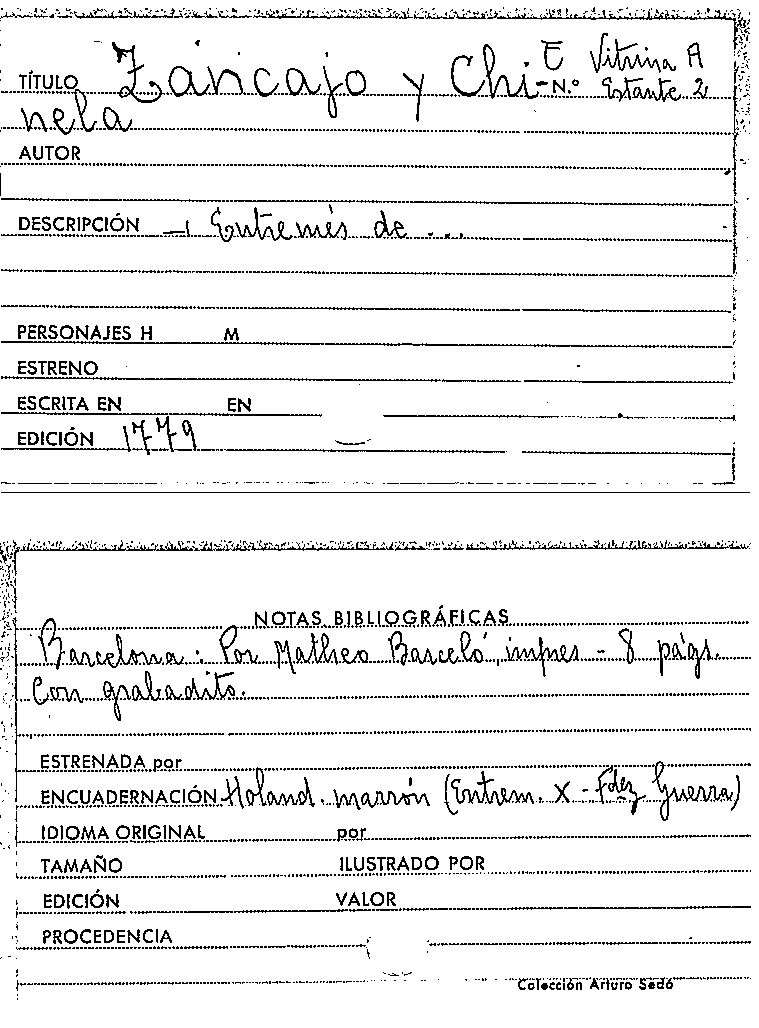 E Vitrina A
TÍTULO Zancajo y Chi- N.º Estante 2
nela
AUTOR
DESCRIPCIÓN — Entremés de ...
PERSONAJES H M
ESTRENO
ESCRITA EN EN
EDICIÓN 1779
NOTAS BIBLIOGRÁFICAS
Barcelona: Por Matheo Barceló, impres - 8 págs.
Con grabadito.
ESTRENADA por
ENCUADERNACIÓN Holand. marrón (Entrem. X - Fdez Guerra)
IDIOMA ORIGINAL por
TAMAÑO ILUSTRADO POR
EDICIÓN VALOR
PROCEDENCIA
Colección Arturo Sedó